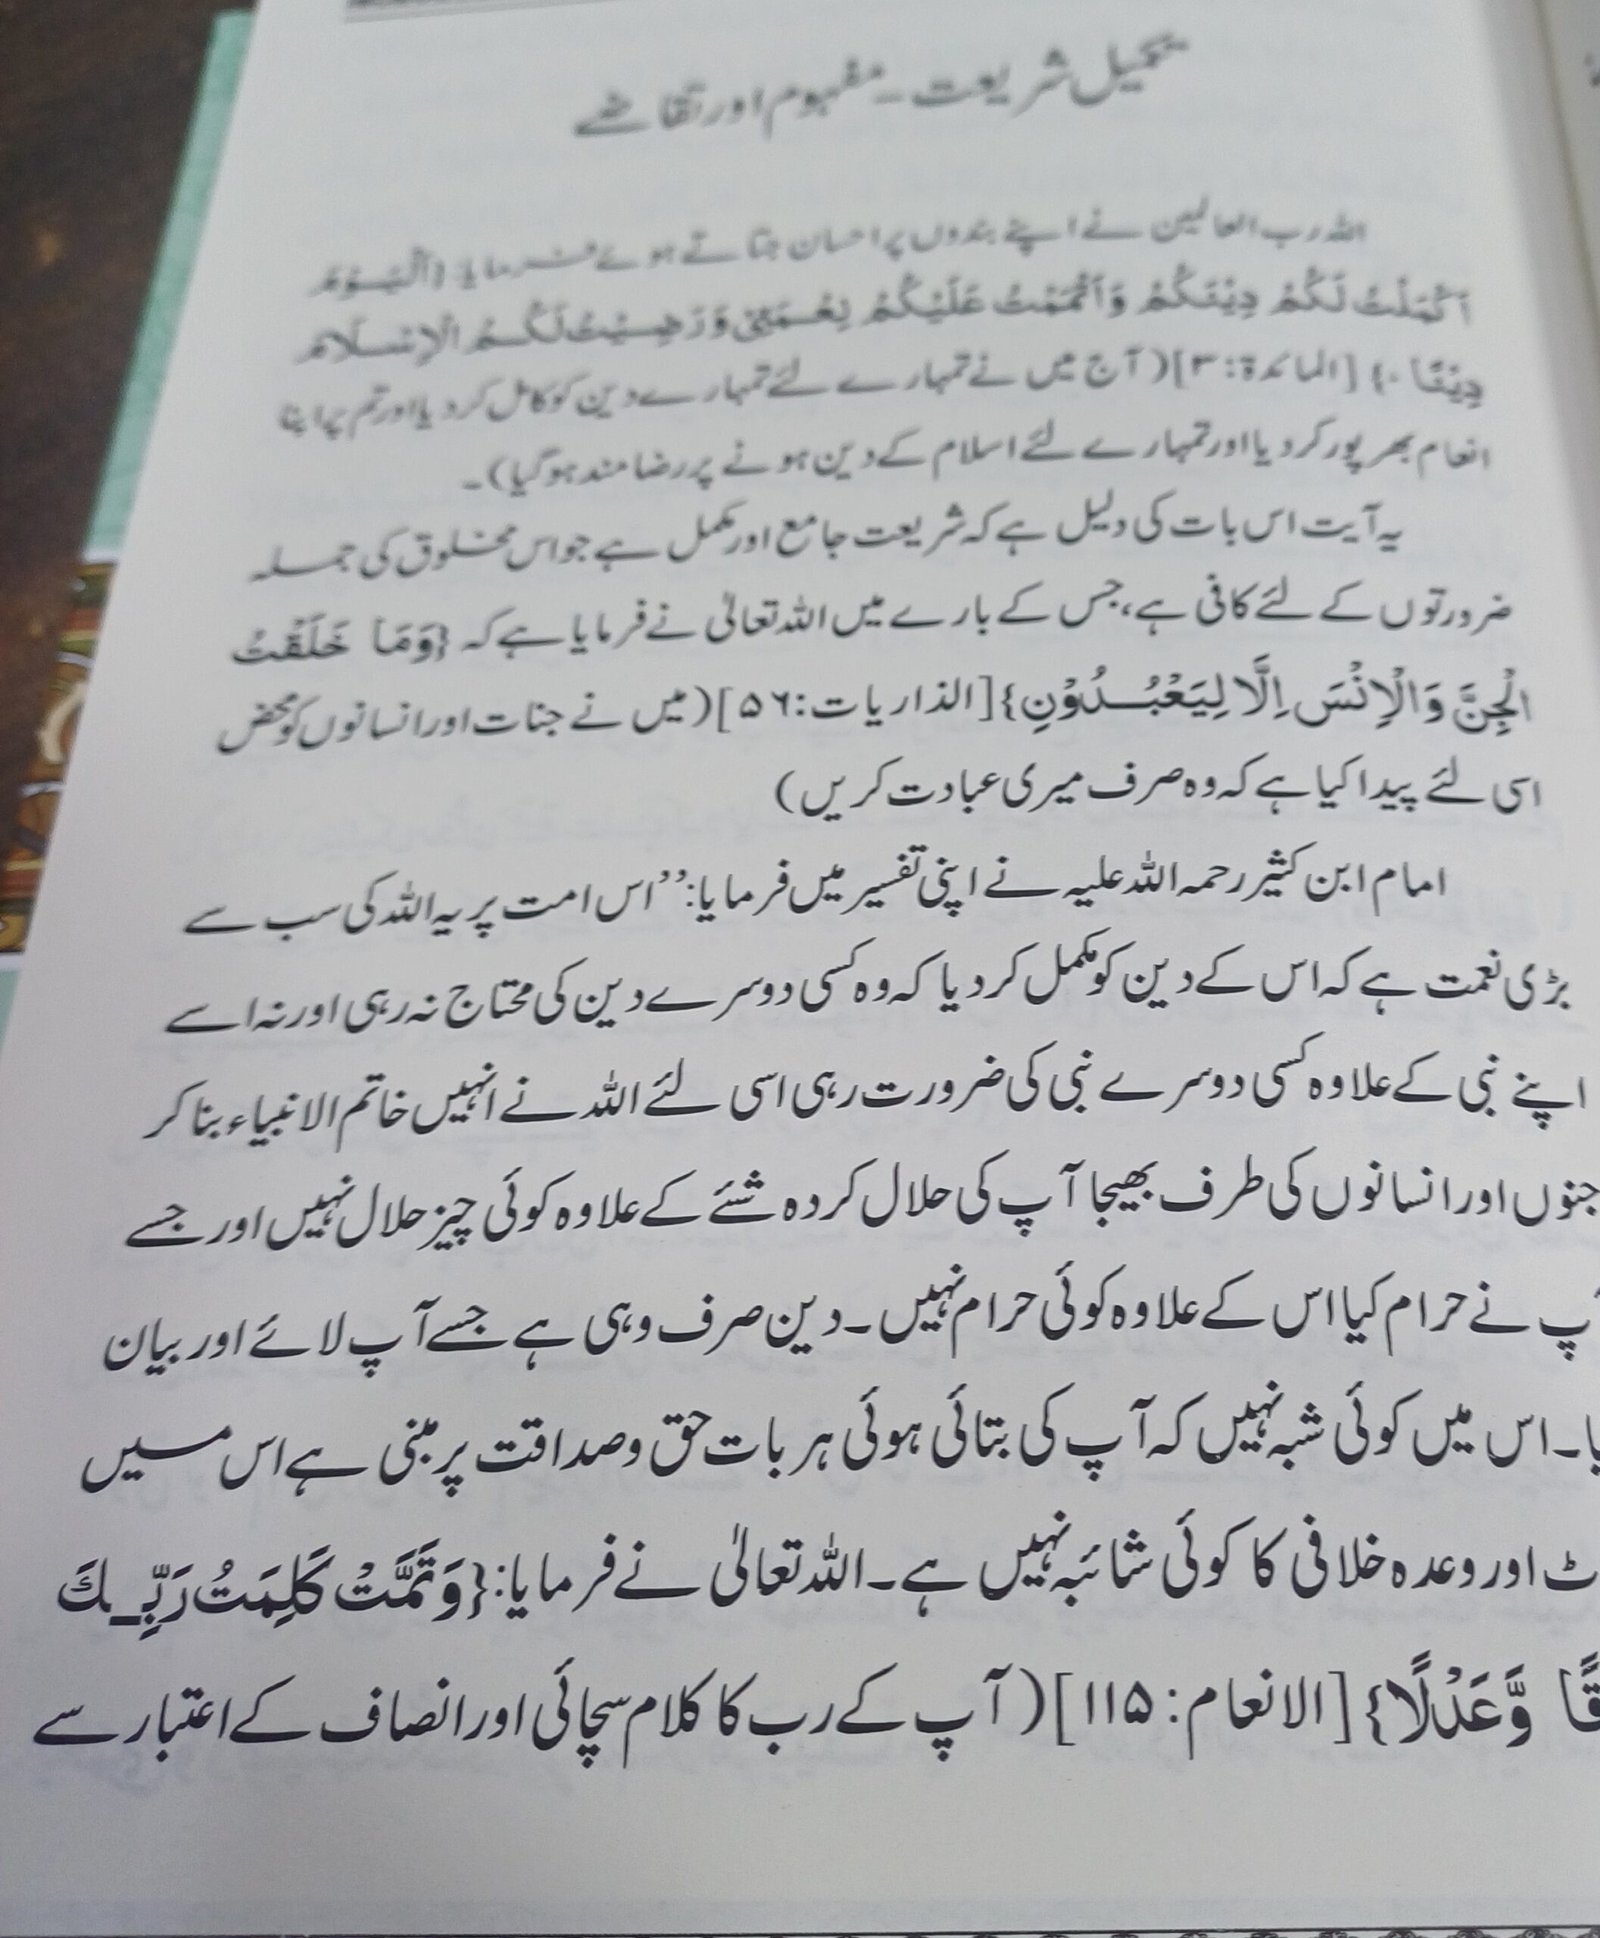 تکمیل شریعت - مفہوم اور تقاضے
اللہ رب العالمین نے اپنے بندوں پر احسان جتاتے ہوئے فرمایا: {اَلْيَوْمَ
اَكْمَلْتُ لَكُمْ دِيْنَكُمْ وَاَتْمَمْتُ عَلَيْكُمْ نِعْمَتِيْ وَرَضِيْتُ لَكُمُ الْاِسْلَامَ
دِيْنًا ۰} [المائدۃ: ۳] (آج میں نے تمہارے لئے تمہارے دین کو کامل کردیا اور تم پر اپنا
انعام بھر پور کر دیا اور تمہارے لئے اسلام کے دین ہونے پر رضا مند ہو گیا)۔
یہ آیت اس بات کی دلیل ہے کہ شریعت جامع اور مکمل ہے جو اس مخلوق کی جملہ
ضرورتوں کے لئے کافی ہے، جس کے بارے میں اللہ تعالیٰ نے فرمایا ہے کہ {وَمَا خَلَقْتُ
الْجِنَّ وَالْاِنْسَ اِلَّا لِيَعْبُدُوْنِ} [الذاریات: ۵۶] (میں نے جنات اور انسانوں کو محض
اسی لئے پیدا کیا ہے کہ وہ صرف میری عبادت کریں)
امام ابن کثیر رحمہ اللہ علیہ نے اپنی تفسیر میں فرمایا: ’’اس امت پر یہ اللہ کی سب سے
بڑی نعمت ہے کہ اس کے دین کو مکمل کر دیا کہ وہ کسی دوسرے دین کی محتاج نہ رہی اور نہ اسے
اپنے نبی کے علاوہ کسی دوسرے نبی کی ضرورت رہی اسی لئے اللہ نے انہیں خاتم الانبیاء بنا کر
جنوں اور انسانوں کی طرف بھیجا آپ کی حلال کردہ شئے کے علاوہ کوئی چیز حلال نہیں اور جسے
پ نے حرام کیا اس کے علاوہ کوئی حرام نہیں۔ دین صرف وہی ہے جسے آپ لائے اور بیان
یا۔ اس میں کوئی شبہ نہیں کہ آپ کی بتائی ہوئی ہر بات حق و صداقت پر مبنی ہے اس میں
ٹ اور وعدہ خلافی کا کوئی شائبہ نہیں ہے۔ اللہ تعالیٰ نے فرمایا: {وَتَمَّتْ كَلِمَتُ رَبِّكَ
قًا وَّعَدْلًا} [الانعام: ۱۱۵] (آپ کے رب کا کلام سچائی اور انصاف کے اعتبار سے